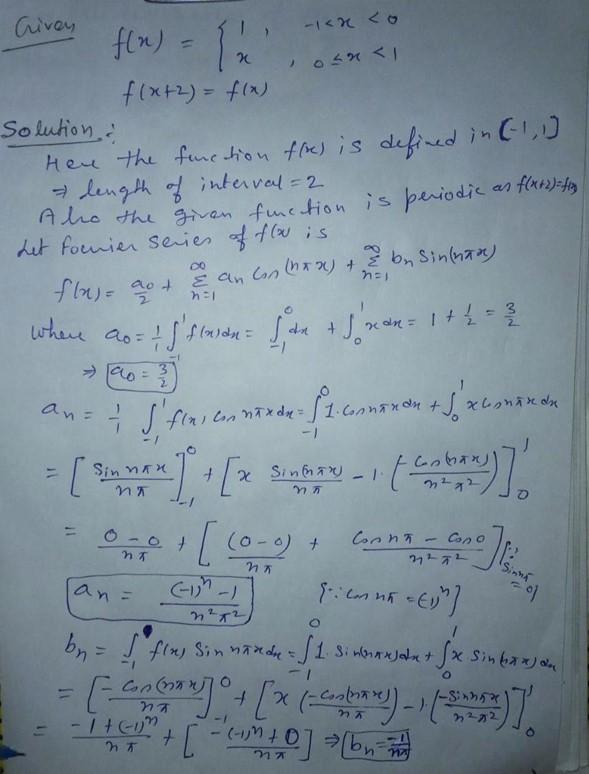 Given
f(x) = { 1 , -1<x<0
x , 0≤x<1
f(x+2) = f(x)
Solution :
Here the function f(x) is defined in [-1,1]
⇒ length of interval = 2
Also the given function is periodic as f(x+2)=f(x)
Let Fourier Series of f(x) is
f(x) = a₀/2 + ∑_{n=1}^{∞} aₙ Cos(nπx) + ∑_{n=1}^{∞} bₙ Sin(nπx)
Where a₀ = 1/1 ∫_{-1}^{1} f(x)dx = ∫_{-1}^{0} dx + ∫_{0}^{1} x dx = 1 + 1/2 = 3/2
⇒ a₀ = 3/2
aₙ = 1/1 ∫_{-1}^{1} f(x) Cos nπx dx = ∫_{-1}^{0} 1. Cos nπx dx + ∫_{0}^{1} x Cos nπx dx
= [Sin nπx / nπ]_{-1}^{0} + [x Sin(nπx)/nπ - 1. (-Cos(nπx)/n²π²)]_{0}^{1}
= (0-0)/nπ + [(0-0)/nπ + (Cos nπ - Cos 0)/n²π²] {∵ Sin nπ = 0}
aₙ = ((-1)ⁿ - 1)/n²π² {∵ Cos nπ = (-1)ⁿ}
bₙ = ∫_{-1}^{1} f(x) Sin nπx dx = ∫_{-1}^{0} 1. Sin(nπx)dx + ∫_{0}^{1} x Sin(nπx) dx
= [-Cos(nπx)/nπ]_{-1}^{0} + [x (-Cos(nπx)/nπ) - 1. (-Sin nπx/n²π²)]_{0}^{1}
= (-1+(-1)ⁿ)/nπ + [(-(-1)ⁿ + 0)/nπ] ⇒ bₙ = -1/nπ